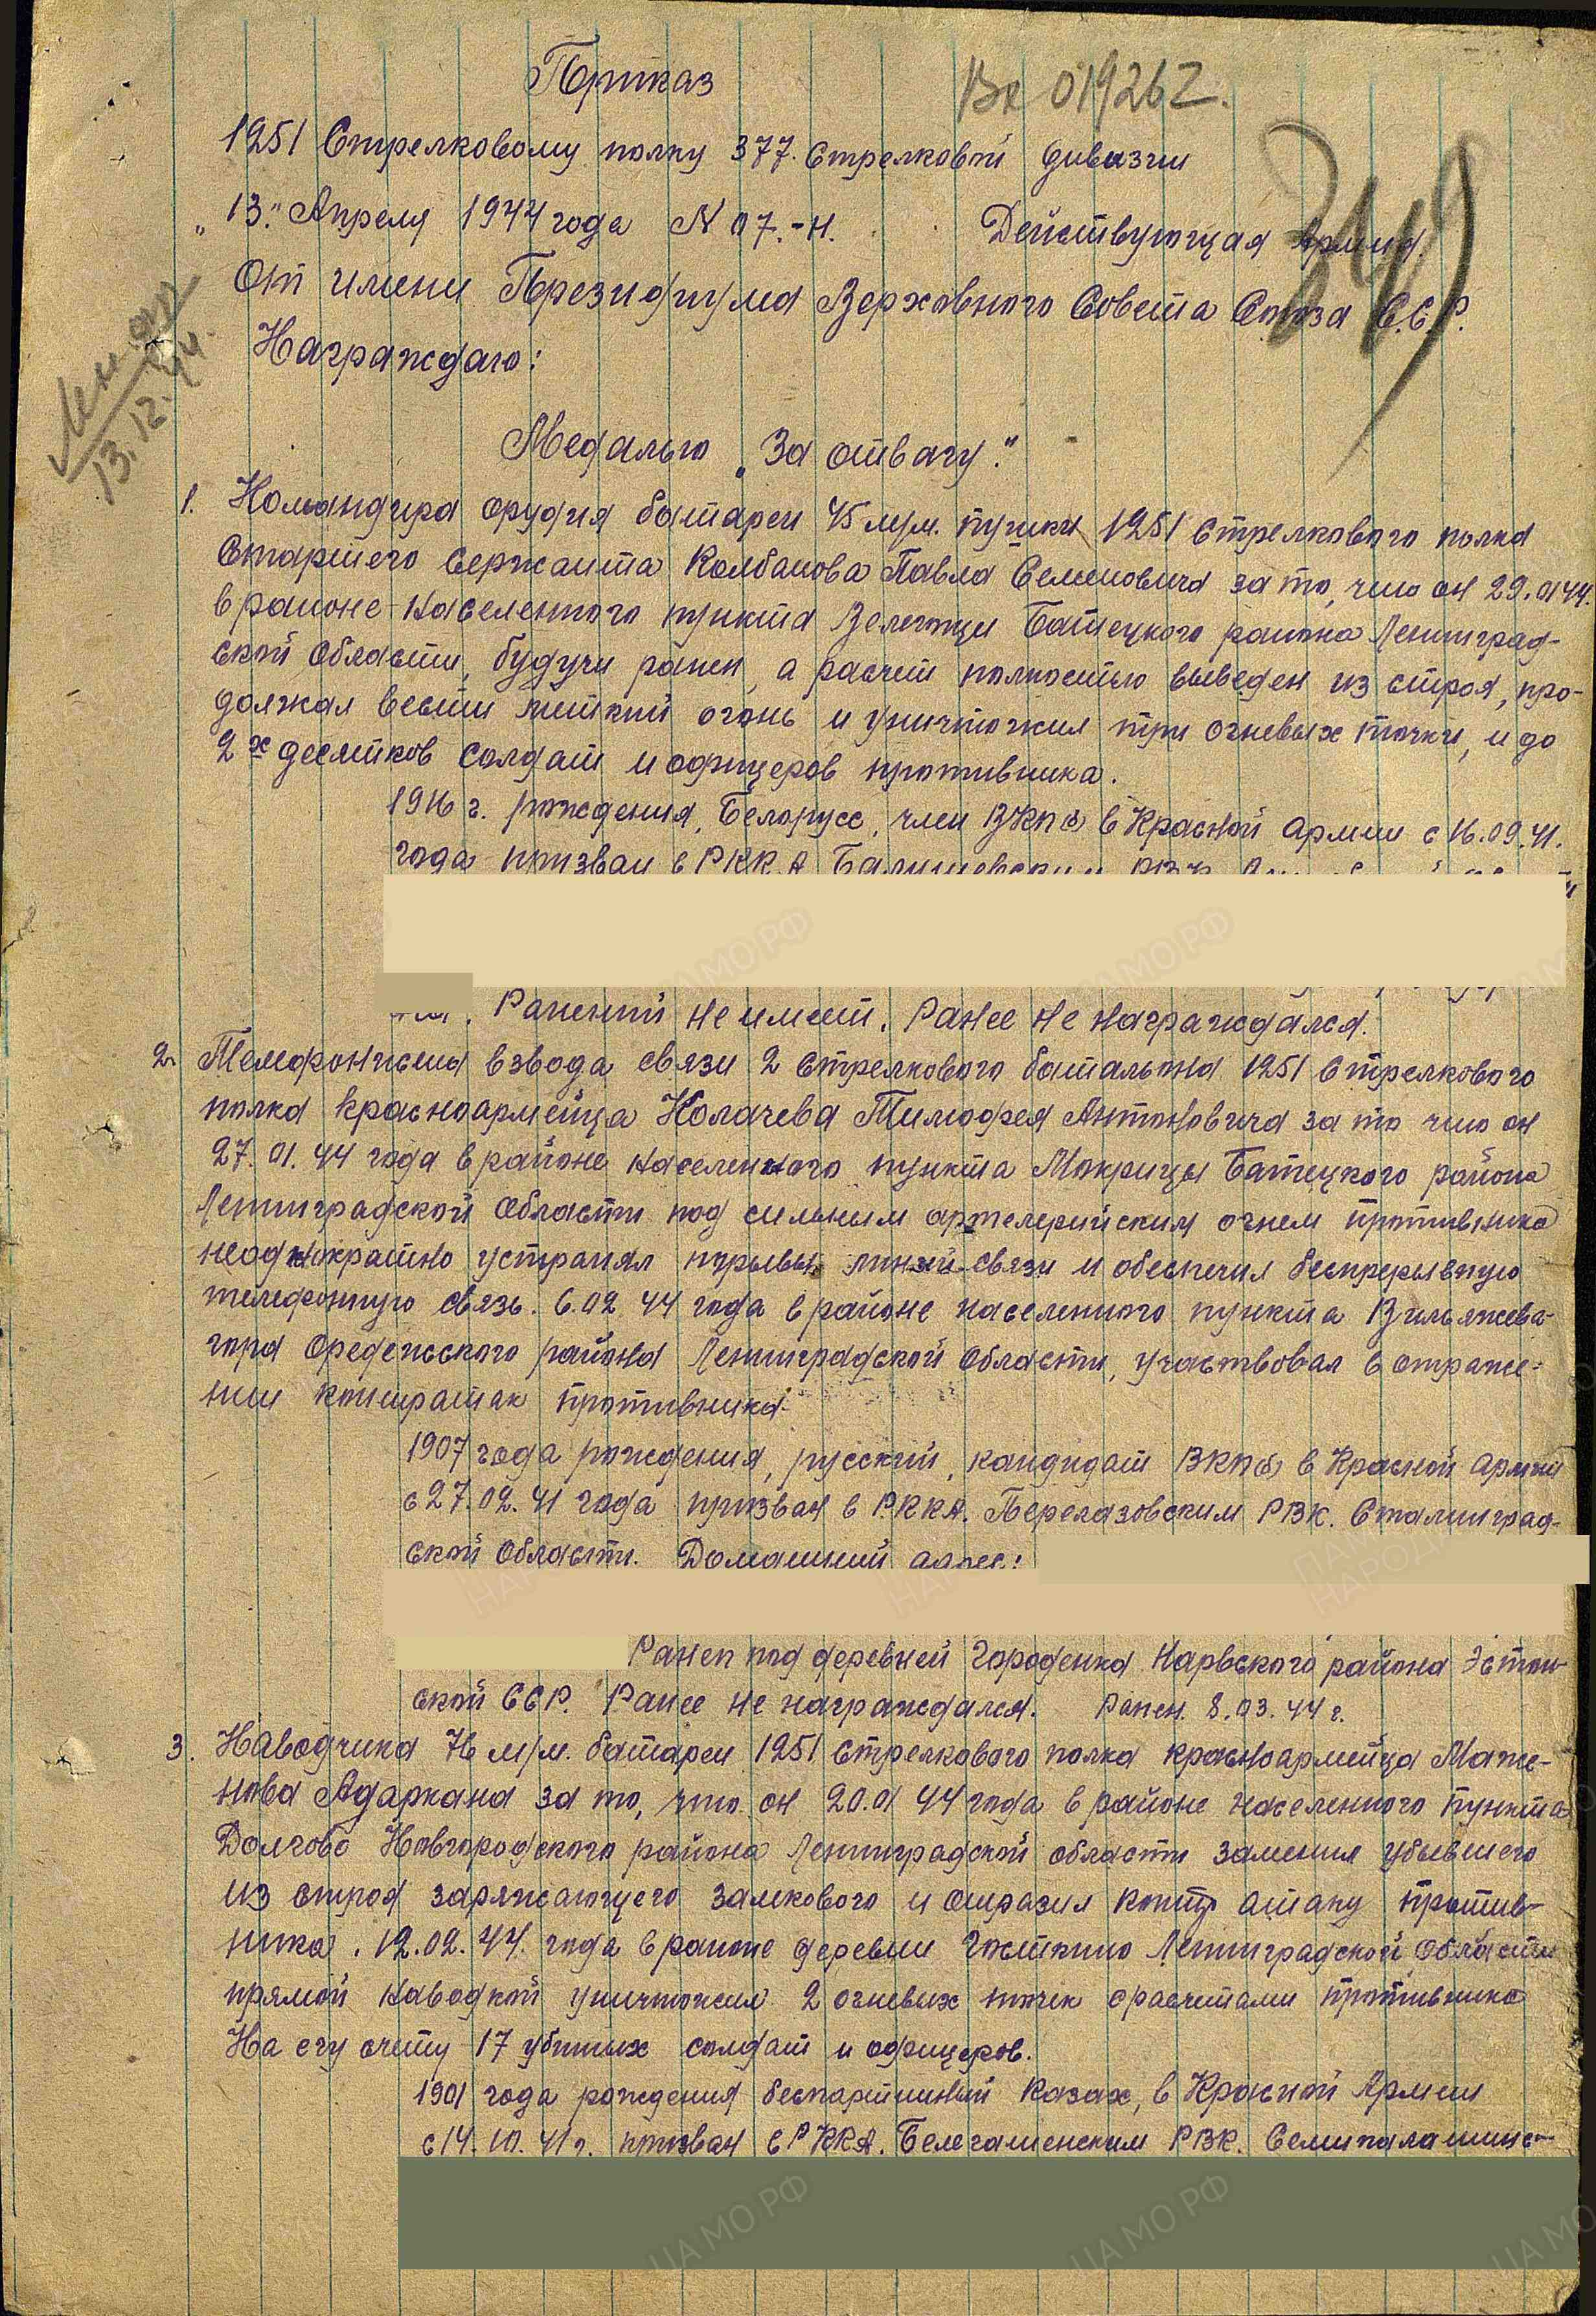 Приказ
Вх 019262.
1251 Стрелковому полку 377. Стрелковой дивизии
"13." Апреля 1944 года N 07.-н. Действующая Армия.
От имени Президиума Верховного Совета Союза С.С.Р.
Награждаю:
13.12.44.
349
Медалью „За отвагу."
1. Командира орудия батареи 45 м/м. пушки 1251 Стрелкового полка
Старшего Сержанта Колбанова Павла Семеновича за то, что он 29.01 44.
в районе населенного пункта Велегощи Батецкого района Ленинград-
ской Области, будучи ранен, а расчет полностью выведен из строя, про-
должал вести меткий огонь и уничтожил три огневых точки, и до
2х десятков солдат и офицеров противника.
1916 г. рождения, Белорусс, член ВКП(б) в Красной Армии с 16.09.41.
года призван в РККА РВК
Ранений не имеет. Ранее не награждался.
2. Телефониста взвода связи 2 Стрелкового батальона 1251 Стрелкового
полка Красноармейца Колачева Тимофея Антоновича за то что он
27.01.44 года в районе населенного пункта Мокрицы Батецкого района
Ленинградской Области под сильным артелерийским огнем противника
неоднократно устранял порывы линей связи и обеспечил беспрерывную
телефонную связь. 6.02 44 года в районе населенного пункта Вильяжева-
гора Оредежского района Ленинградской Области, участвовал в отраже-
нии контратак противника.
1907 года рождения, русский, кандидат ВКП(б) в Красной Армии
с 27.02.41 года призван в РККА. Перелазовским РВК. Сталинград-
ской Области. Домашний адрес:
Ранен под деревней Городенка Нарвского района Эстон-
ской ССР. Ранее не награждался. Ранен. 8.03.44 г.
3. Наводчика 76 м/м. батареи 1251 Стрелкового полка красноармейца Маже-
нова Адаркана за то, что он 20.01 44 года в районе населенного пункта
Долгово Новгородского района Ленинградской области заменил убывшего
из строя заряжающего замкового и отразил контр атаку против-
ника. 12.02.44. года в районе деревни Госткино Ленинградской Области
прямой наводкой уничтожил 2 огневых точек с расчетами противника
На его счету 17 убитых солдат и офицеров.
1901 года рождения беспартийный Казах, в Красной Армии
с 14.10.41 г. призван в РККА. Белегашенским РВК. Семипалатинс-
ЦАМО.РФ